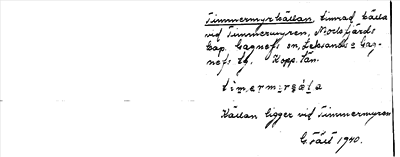 Timmermyrkällan, timrad källa
vid Timmermyren, Mockfjärds
kap. Gagnefs sn, Leksands o Gag-
nefs tg. Kopp. län.
Källan ligger vid Timmermyren
G. Fält 1940.